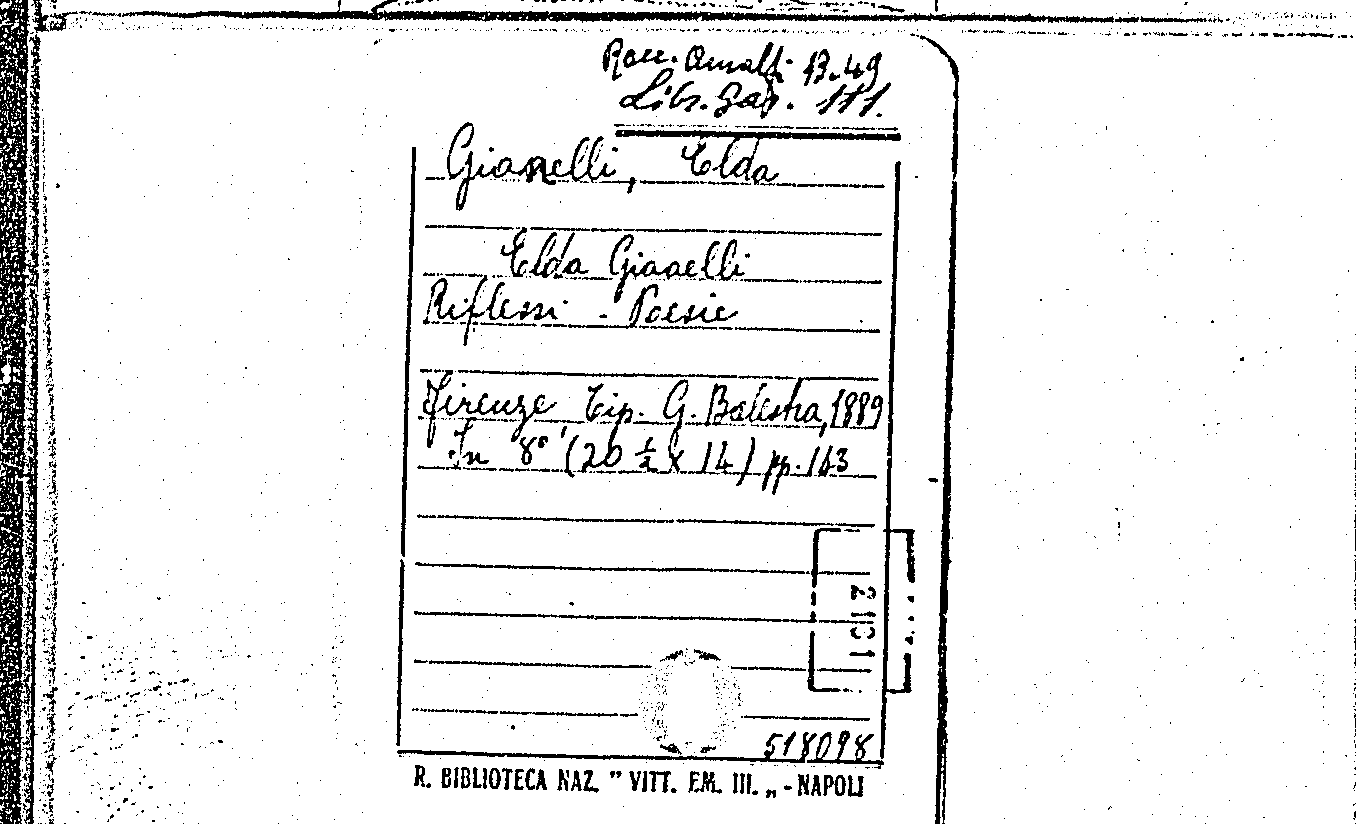 Racc. Amalfi B. 49
Libr. Gap. 111.
Gianelli, Elda
Elda Gianelli
Riflessi - Poesie
Firenze Tip. G. Balestra, 1889
In 8° (20 ½ x 14) pp. 143
2101
518098
R. BIBLIOTECA NAZ. " VITT. EM. III. „ - NAPOLI